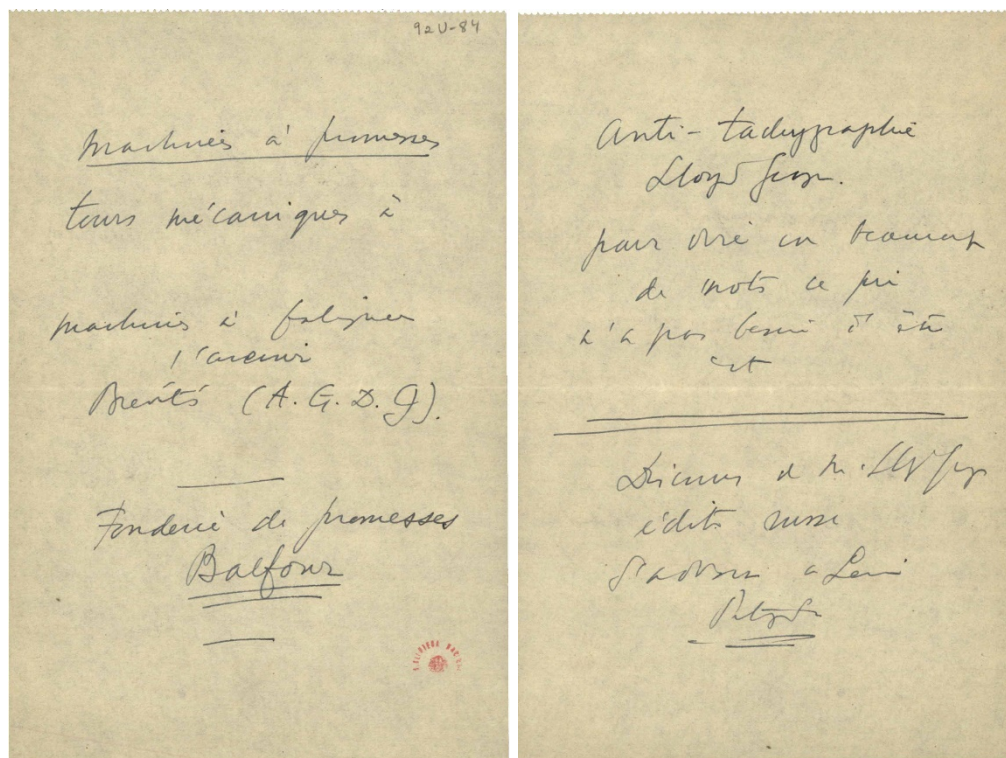 92U-84
Machines à promesses
tours mécaniques à
machines à
l'avenir
Brevités (A. G. D. G).
Fonderie de promesses
Balfour
Anti-tachygraphie
Lloyd George.
pour dire en beaucoup
de mots ce qui
n'a pas besoin d'être
Discours de M. Lloyd George
édité russe
S'adresser à Lenine